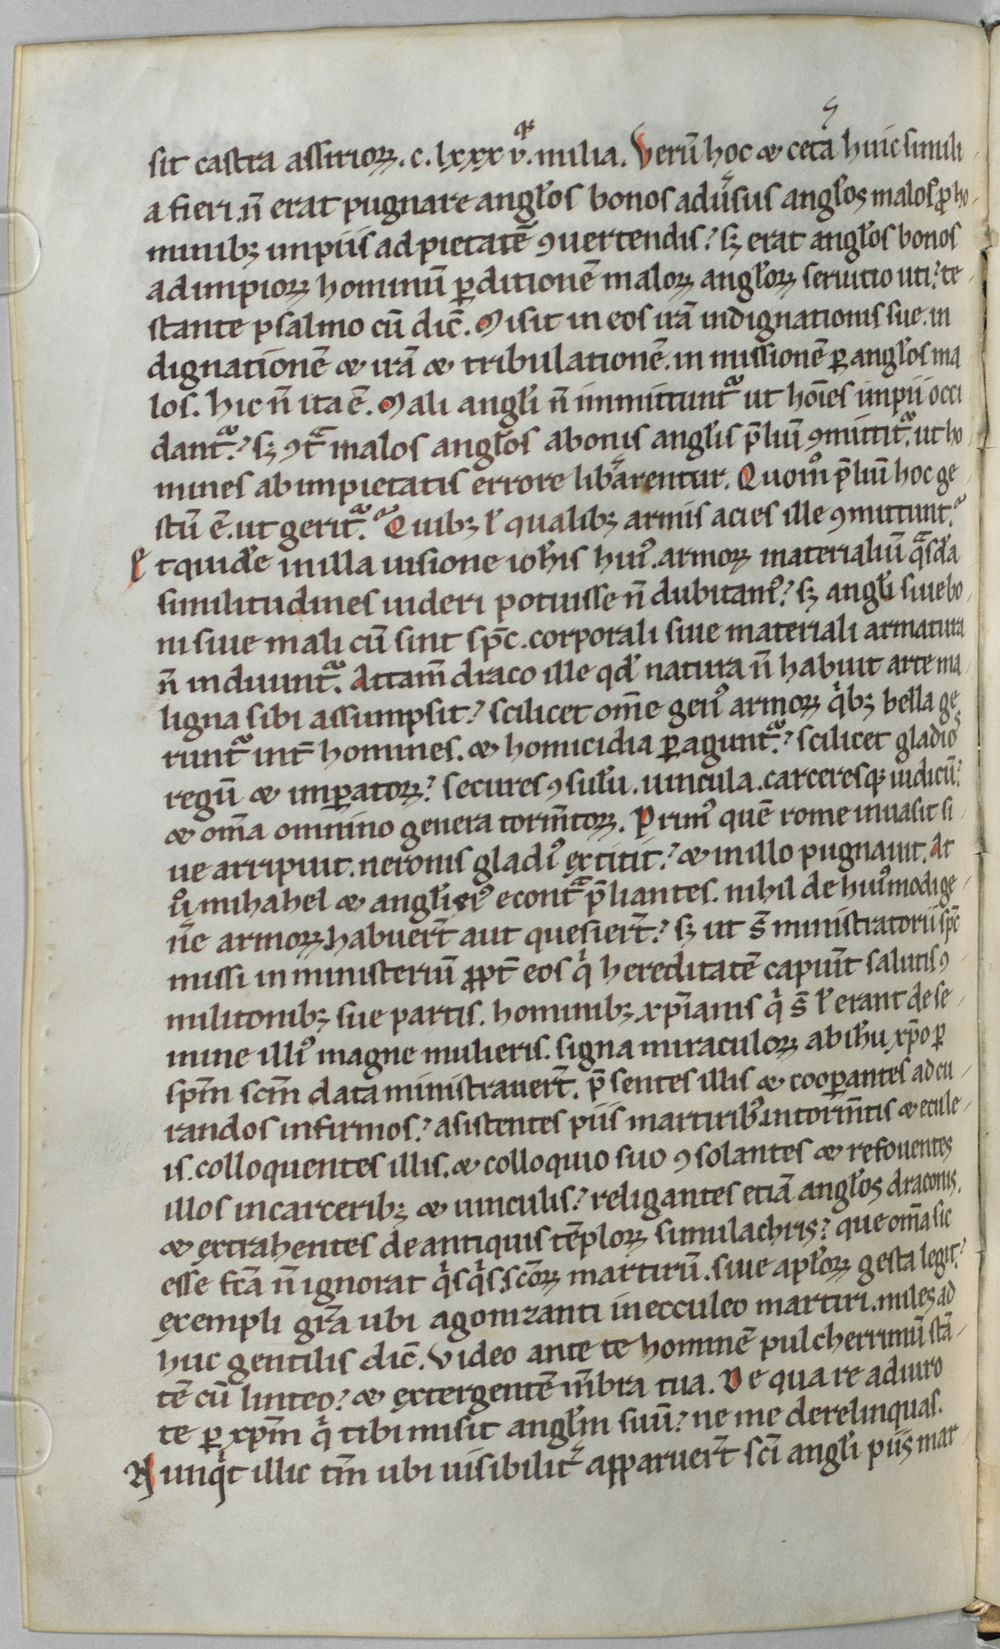 sit castra assirioꝝ. c. lxxx v̇. milia. Verū hoc ⁊ cetᷓa huic simili
a fieri. n̄ erat pugnare angl̓os bonos adūsus angl̓os malos ꝓ ho-
minibꝫ impiis ad pietatē ꝯuertendis? sꝫ erat angl̓os bonos
ad impioꝝ hominū ꝑditionē maloꝝ angl̓oꝝ seruitio uti? te-
stante psalmo cū dic̄. Misit in eos irā indignationis sue. in
dignationē ⁊ irā ⁊ tribulationē. in missionē ꝑ angl̓os ma
los. hic n̄ ita ē. Mali angl̓i n̄ immittuntᷓ ut hoīes impii occi
dantᷓ? sꝫ ꝯtᷓ malos angl̓os a bonis angl̓is p̄liū ꝯmittitᷓ. ut ho-
mines ab impietatis errore lib̄arentur. Quom̊ p̄liū hoc ge-
stū ē. ut geritᷓ? Quibꝫ l̓ qualibꝫ armis acies ille ꝯmittuntᷓ?
Et quidē in illa uisione ioh̓is hui᷒ armoꝝ materialiū qᷓsdā
similitudines uideri potuisse n̄ dubitam᷒? sꝫ angl̓i siue bo-
ni siue mali cū sint sp̄c. corporali siue materiali armatura
n̄ induuntᷓ. Attam̄ draco ille qd̓ natura n̄ habuit arte ma-
ligna sibi assumpsit? scilicet om̄e gen᷒ armoꝝ qͥbꝫ bella ge
runtᷓ int̄ homines. ⁊ homicidia ꝑaguntᷓ? scilicet gladios
regū ⁊ imꝑatoꝝ? secures ꝯsulū. uincula. carceresqꝫ iudicū?
⁊ om̄a omnino genera torm̄toꝝ. Prim᷒ quē rome inuasit si-
ue arripuit. neronis gladi᷒ extitit? ⁊ in illo pugnauit. At
ů mihahel ⁊ angl̓i ei᷒ econtᷓ p̄liantes. nihil de hui᷒modi ge-
n̄e armoꝝ habuer̄t aut quesier̄t? sꝫ ut s̄ ministratorii sp̄c
missi in ministeriū ꝓpt̄ eos qͥ hereditatē capiūt salutis ꝯ
militonibꝫ sue partis. hominibꝫ xp̄ianis qͥ s̄ l̓ erant de se-
mine illi᷒ magne mulieris. signa miraculoꝝ ab ih̄u xp̄o ꝑ
sp̄m sc̄m data ministrauer̄t. p̄sentes illis ⁊ cooꝑantes ad cu-
randos infirmos? asistentes piis martirib᷒ in torm̄tis ⁊ ecule-
is. colloquentes illis. ⁊ colloquio suo ꝯsolantes ⁊ refouentes
illos in carceribꝫ ⁊ uinculis? religantes etiā angl̓os draconis.
⁊ extrahentes de antiquis tēploꝝ simulachris? que om̄a sic
esse fc̄a n̄ ignorat qͥsqͥs sc̄oꝝ martirū. siue apl̓oꝝ gesta legit?
exempli grā ubi agonizanti in ecculeo martiri. miles ad
huc gentilis dic̄. Video ante te hominē pulcherrimū stā-
tē cū linteo? ⁊ extergentē m̄bra tua. De qua re adiuro
te ꝑ xp̄m qͥ tibi misit angl̓m suū? ne me derelinquas.
Nunqͥt illic tm̄ ubi uisibilit̄ apparuer̄t sc̄i angl̓i piis mar-